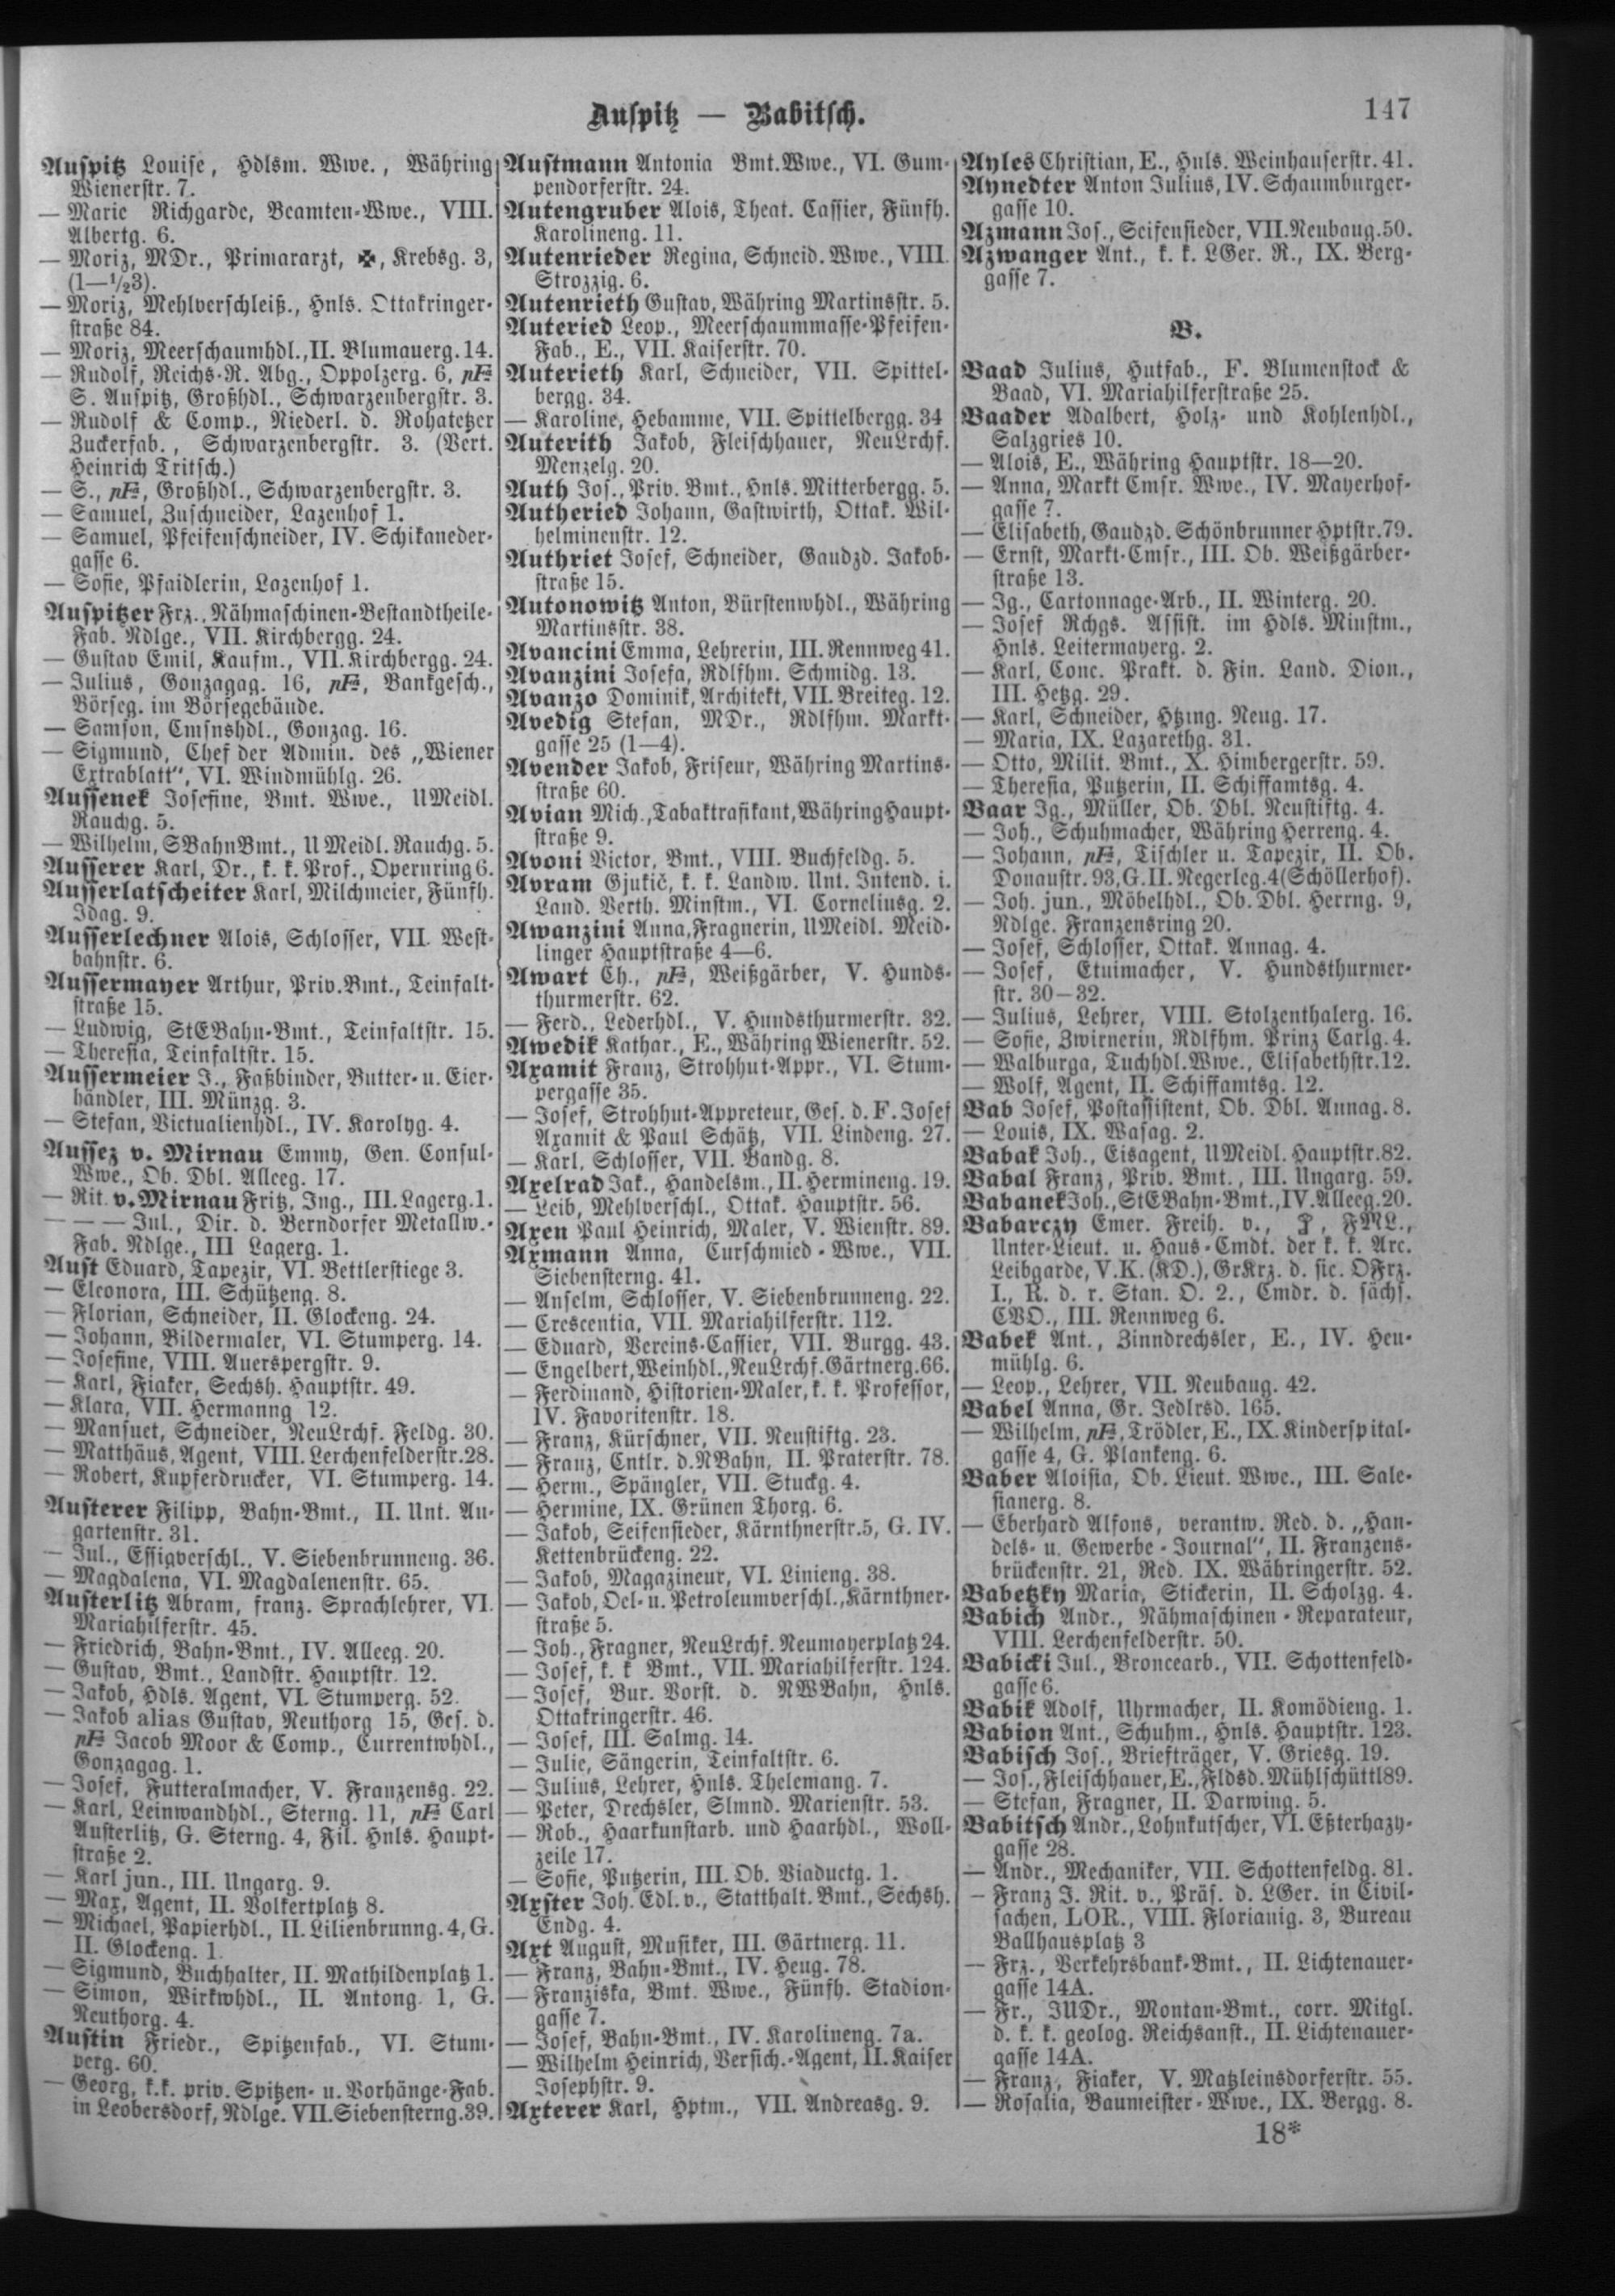 Auspitz — Babitsch.
147
Auspitz Louise, Hdlsm. Wwe., Währing
Wienerstr. 7.
— Marie Richgarde, Beamten-Wwe., VIII.
Albertg. 6.
— Moriz, MDr., Primararzt, ✠, Krebsg. 3,
(1—½3).
— Moriz, Mehlverschleiß., Hnls. Ottakringer-
straße 84.
— Moriz, Meerschaumhdl., II. Blumauerg. 14.
— Rudolf, Reichs-R. Abg., Oppolzerg. 6, pF
S. Auspitz, Großhdl., Schwarzenbergstr. 3.
— Rudolf & Comp., Niederl. d. Rohatetzer
Zuckerfab., Schwarzenbergstr. 3. (Vert.
Heinrich Tritsch.)
— S., pF, Großhdl., Schwarzenbergstr. 3.
— Samuel, Zuschneider, Lazenhof 1.
— Samuel, Pfeifenschneider, IV. Schikaneder-
gasse 6.
— Sofie, Pfaidlerin, Lazenhof 1.
Auspitzer Frz., Nähmaschinen-Bestandtheile-
Fab. Ndlge., VII. Kirchbergg. 24.
— Gustav Emil, Kaufm., VII. Kirchbergg. 24.
— Julius, Gonzagag. 16, pF, Bankgesch.,
Börseg. im Börsegebäude.
— Samson, Cmsnshdl., Gonzag. 16.
— Sigmund, Chef der Admin. des „Wiener
Extrablatt“, VI. Windmühlg. 26.
Aussenek Josefine, Bmt. Wwe., UMeidl.
Rauchg. 5.
— Wilhelm, SBahnBmt., UMeidl. Rauchg. 5.
Ausserer Karl, Dr., k. k. Prof., Opernring 6.
Ausserlatscheiter Karl, Milchmeier, Fünfh.
Idag. 9.
Ausserlechner Alois, Schlosser, VII. West-
bahnstr. 6.
Aussermayer Arthur, Priv.Bmt., Teinfalt-
straße 15.
— Ludwig, StEBahn-Bmt., Teinfaltstr. 15.
— Theresia, Teinfaltstr. 15.
Aussermeier J., Faßbinder, Butter- u. Eier-
händler, III. Münzg. 3.
— Stefan, Victualienhdl., IV. Karolyg. 4.
Aussez v. Mirnau Emmy, Gen. Consul-
Wwe., Ob. Dbl. Alleeg. 17.
— Rit. v. Mirnau Fritz, Ing., III. Lagerg. 1.
— — — Jul., Dir. d. Berndorfer Metallw.-
Fab. Ndlge., III Lagerg. 1.
Aust Eduard, Tapezir, VI. Bettlerstiege 3.
— Eleonora, III. Schützeng. 8.
— Florian, Schneider, II. Glockeng. 24.
— Johann, Bildermaler, VI. Stumperg. 14.
— Josefine, VIII. Auerspergstr. 9.
— Karl, Fiaker, Sechsh. Hauptstr. 49.
— Klara, VII. Hermanng 12.
— Mansuet, Schneider, NeuLrchf. Feldg. 30.
— Matthäus, Agent, VIII. Lerchenfelderstr. 28.
— Robert, Kupferdrucker, VI. Stumperg. 14.
Austerer Filipp, Bahn-Bmt., II. Unt. Au-
gartenstr. 31.
— Jul., Essigverschl., V. Siebenbrunneng. 36.
— Magdalena, VI. Magdalenenstr. 65.
Austerlitz Abram, franz. Sprachlehrer, VI.
Mariahilferstr. 45.
— Friedrich, Bahn-Bmt., IV. Alleeg. 20.
— Gustav, Bmt., Landstr. Hauptstr. 12.
— Jakob, Hdls. Agent, VI. Stumperg. 52.
— Jakob alias Gustav, Neuthorg 15, Ges. d.
pF Jacob Moor & Comp., Currentwhdl.,
Gonzagag. 1.
— Josef, Futteralmacher, V. Franzensg. 22.
— Karl, Leinwandhdl., Sterng. 11, pF Carl
Austerlitz, G. Sterng. 4, Fil. Hnls. Haupt-
straße 2.
— Karl jun., III. Ungarg. 9.
— Max, Agent, II. Volkertplatz 8.
— Michael, Papierhdl., II. Lilienbrunng. 4, G.
II. Glockeng. 1.
— Sigmund, Buchhalter, II. Mathildenplatz 1.
— Simon, Wirkwhdl., II. Antong. 1, G.
Neuthorg. 4.
Austin Friedr., Spitzenfab., VI. Stum-
perg. 60.
— Georg, k.k. priv. Spitzen- u. Vorhänge-Fab.
in Leobersdorf, Ndlge. VII. Siebensterng. 39.
Austmann Antonia Bmt.Wwe., VI. Gum-
pendorferstr. 24.
Autengruber Alois, Theat. Cassier, Fünfh.
Karolineng. 11.
Autenrieder Regina, Schneid. Wwe., VIII.
Strozzig. 6.
Autenrieth Gustav, Währing Martinsstr. 5.
Auteried Leop., Meerschaummasse-Pfeifen-
Fab., E., VII. Kaiserstr. 70.
Auterieth Karl, Schneider, VII. Spittel-
bergg. 34.
— Karoline, Hebamme, VII. Spittelbergg. 34
Auterith Jakob, Fleischhauer, NeuLrchf.
Menzelg. 20.
Auth Jos., Priv. Bmt., Hnls. Mitterbergg. 5.
Autheried Johann, Gastwirth, Ottak. Wil-
helminenstr. 12.
Authriet Josef, Schneider, Gaudzd. Jakob-
straße 15.
Autonowitz Anton, Bürstenwhdl., Währing
Martinsstr. 38.
Avancini Emma, Lehrerin, III. Rennweg 41.
Avanzini Josefa, Rdlfhm. Schmidg. 13.
Avanzo Dominik, Architekt, VII. Breiteg. 12.
Avedig Stefan, MDr., Rdlfhm. Markt-
gasse 25 (1—4).
Avender Jakob, Friseur, Währing Martins-
straße 60.
Avian Mich., Tabaktrafikant, Währing Haupt-
straße 9.
Avoni Victor, Bmt., VIII. Buchfeldg. 5.
Avram Gjukič, k. k. Landw. Unt. Intend. i.
Land. Verth. Minstm., VI. Corneliusg. 2.
Awanzini Anna, Fragnerin, UMeidl. Meid-
linger Hauptstraße 4—6.
Awart Ch., pF, Weißgärber, V. Hunds-
thurmerstr. 62.
— Ferd., Lederhdl., V. Hundsthurmerstr. 32.
Awedik Kathar., E., Währing Wienerstr. 52.
Axamit Franz, Strohhut-Appr., VI. Stum-
pergasse 35.
— Josef, Strohhut-Appreteur, Ges. d. F. Josef
Axamit & Paul Schätz, VII. Lindeng. 27.
— Karl, Schlosser, VII. Bandg. 8.
Axelrad Jak., Handelsm., II. Hermineng. 19.
— Leib, Mehlverschl., Ottak. Hauptstr. 56.
Axen Paul Heinrich, Maler, V. Wienstr. 89.
Axmann Anna, Curschmied-Wwe., VII.
Siebensterng. 41.
— Anselm, Schlosser, V. Siebenbrunneng. 22.
— Crescentia, VII. Mariahilferstr. 112.
— Eduard, Vereins-Cassier, VII. Burgg. 43.
— Engelbert, Weinhdl., NeuLrchf. Gärtnerg. 66.
— Ferdinand, Historien-Maler, k. k. Professor,
IV. Favoritenstr. 18.
— Franz, Kürschner, VII. Neustiftg. 23.
— Franz, Cntlr. d. NBahn, II. Praterstr. 78.
— Herm., Spängler, VII. Stuckg. 4.
— Hermine, IX. Grünen Thorg. 6.
— Jakob, Seifensieder, Kärnthnerstr. 5, G. IV.
Kettenbrückeng. 22.
— Jakob, Magazineur, VI. Linieng. 38.
— Jakob, Oel- u. Petroleumverschl., Kärnthner-
straße 5.
— Joh., Fragner, NeuLrchf. Neumayerplatz 24.
— Josef, k. k Bmt., VII. Mariahilferstr. 124.
— Josef, Bur. Vorst. d. NWBahn, Hnls.
Ottakringerstr. 46.
— Josef, III. Salmg. 14.
— Julie, Sängerin, Teinfaltstr. 6.
— Julius, Lehrer, Hnls. Thelemang. 7.
— Peter, Drechsler, Slmnd. Marienstr. 53.
— Rob., Haarkunstarb. und Haarhdl., Woll-
zeile 17.
— Sofie, Putzerin, III. Ob. Viaductg. 1.
Axster Joh. Edl. v., Statthalt. Bmt., Sechsh.
Endg. 4.
Axt August, Musiker, III. Gärtnerg. 11.
— Franz, Bahn-Bmt., IV. Heug. 78.
— Franziska, Bmt. Wwe., Fünfh. Stadion-
gasse 7.
— Josef, Bahn-Bmt., IV. Karolineng. 7a.
— Wilhelm Heinrich, Versich.-Agent, II. Kaiser
Josephstr. 9.
Axterer Karl, Hptm., VII. Andreasg. 9.
Ayles Christian, E., Hnls. Weinhauserstr. 41.
Aynedter Anton Julius, IV. Schaumburger-
gasse 10.
Azmann Jos., Seifensieder, VII. Neubaug. 50.
Azwanger Ant., k. k. LGer. R., IX. Berg-
gasse 7.
B.
Baad Julius, Hutfab., F. Blumenstock &
Baad, VI. Mariahilferstraße 25.
Baader Adalbert, Holz- und Kohlenhdl.,
Salzgries 10.
— Alois, E., Währing Hauptstr. 18—20.
— Anna, Markt Cmsr. Wwe., IV. Mayerhof-
gasse 7.
— Elisabeth, Gaudzd. Schönbrunner Hptstr. 79.
— Ernst, Markt-Cmsr., III. Ob. Weißgärber-
straße 13.
— Ig., Cartonnage-Arb., II. Winterg. 20.
— Josef Rchgs. Assist. im Hdls. Minstm.,
Hnls. Leitermayerg. 2.
— Karl, Conc. Prakt. d. Fin. Land. Dion.,
III. Hetzg. 29.
— Karl, Schneider, Htzing. Neug. 17.
— Maria, IX. Lazarethg. 31.
— Otto, Milit. Bmt., X. Himbergerstr. 59.
— Theresia, Putzerin, II. Schiffamtsg. 4.
Baar Ig., Müller, Ob. Dbl. Neustiftg. 4.
— Joh., Schuhmacher, Währing Herreng. 4.
— Johann, pF, Tischler u. Tapezir, II. Ob.
Donaustr. 93, G. II. Negerleg. 4 (Schöllerhof).
— Joh. jun., Möbelhdl., Ob. Dbl. Herrng. 9,
Ndlge. Franzensring 20.
— Josef, Schlosser, Ottak. Annag. 4.
— Josef, Etuimacher, V. Hundsthurmer-
str. 30—32.
— Julius, Lehrer, VIII. Stolzenthalerg. 16.
— Sofie, Zwirnerin, Rdlfhm. Prinz Carlg. 4.
— Walburga, Tuchhdl. Wwe., Elisabethstr. 12.
— Wolf, Agent, II. Schiffamtsg. 12.
Bab Josef, Postassistent, Ob. Dbl. Annag. 8.
— Louis, IX. Wasag. 2.
Babak Joh., Eisagent, UMeidl. Hauptstr. 82.
Babal Franz, Priv. Bmt., III. Ungarg. 59.
Babanek Joh., StEBahn-Bmt., IV. Alleeg. 20.
Babarczy Emer. Freih. v., , FML.,
Unter-Lieut. u. Haus-Cmdt. der k. k. Arc.
Leibgarde, V.K. (KD.), GrKrz. d. sic. OFrz.
I., R. d. r. Stan. O. 2., Cmdr. d. sächs.
CVO., III. Rennweg 6.
Babek Ant., Zinndrechsler, E., IV. Heu-
mühlg. 6.
— Leop., Lehrer, VII. Neubaug. 42.
Babel Anna, Gr. Jedlrsd. 165.
— Wilhelm, pF, Trödler, E., IX. Kinderspital-
gasse 4, G. Plankeng. 6.
Baber Aloisia, Ob. Lieut. Wwe., III. Sale-
sianerg. 8.
— Eberhard Alfons, verantw. Red. d. „Han-
dels- u. Gewerbe-Journal“, II. Franzens-
brückenstr. 21, Red. IX. Währingerstr. 52.
Babetzky Maria, Stickerin, II. Scholzg. 4.
Babich Andr., Nähmaschinen-Reparateur,
VIII. Lerchenfelderstr. 50.
Babicki Jul., Broncearb., VII. Schottenfeld-
gasse 6.
Babik Adolf, Uhrmacher, II. Komödieng. 1.
Babion Ant., Schuhm., Hnls. Hauptstr. 123.
Babisch Jos., Briefträger, V. Griesg. 19.
— Jos., Fleischhauer, E., Fldsd. Mühlschüttl 89.
— Stefan, Fragner, II. Darwing. 5.
Babitsch Andr., Lohnkutscher, VI. Eßterhazy-
gasse 28.
— Andr., Mechaniker, VII. Schottenfeldg. 81.
— Franz J. Rit. v., Präs. d. LGer. in Civil-
sachen, LOR., VIII. Florianig. 3, Bureau
Ballhausplatz 3
— Frz., Verkehrsbank-Bmt., II. Lichtenauer-
gasse 14A.
— Fr., JUDr., Montan-Bmt., corr. Mitgl.
d. k. k. geolog. Reichsanst., II. Lichtenauer-
gasse 14A.
— Franz, Fiaker, V. Matzleinsdorferstr. 55.
— Rosalia, Baumeister-Wwe., IX. Bergg. 8.
18*